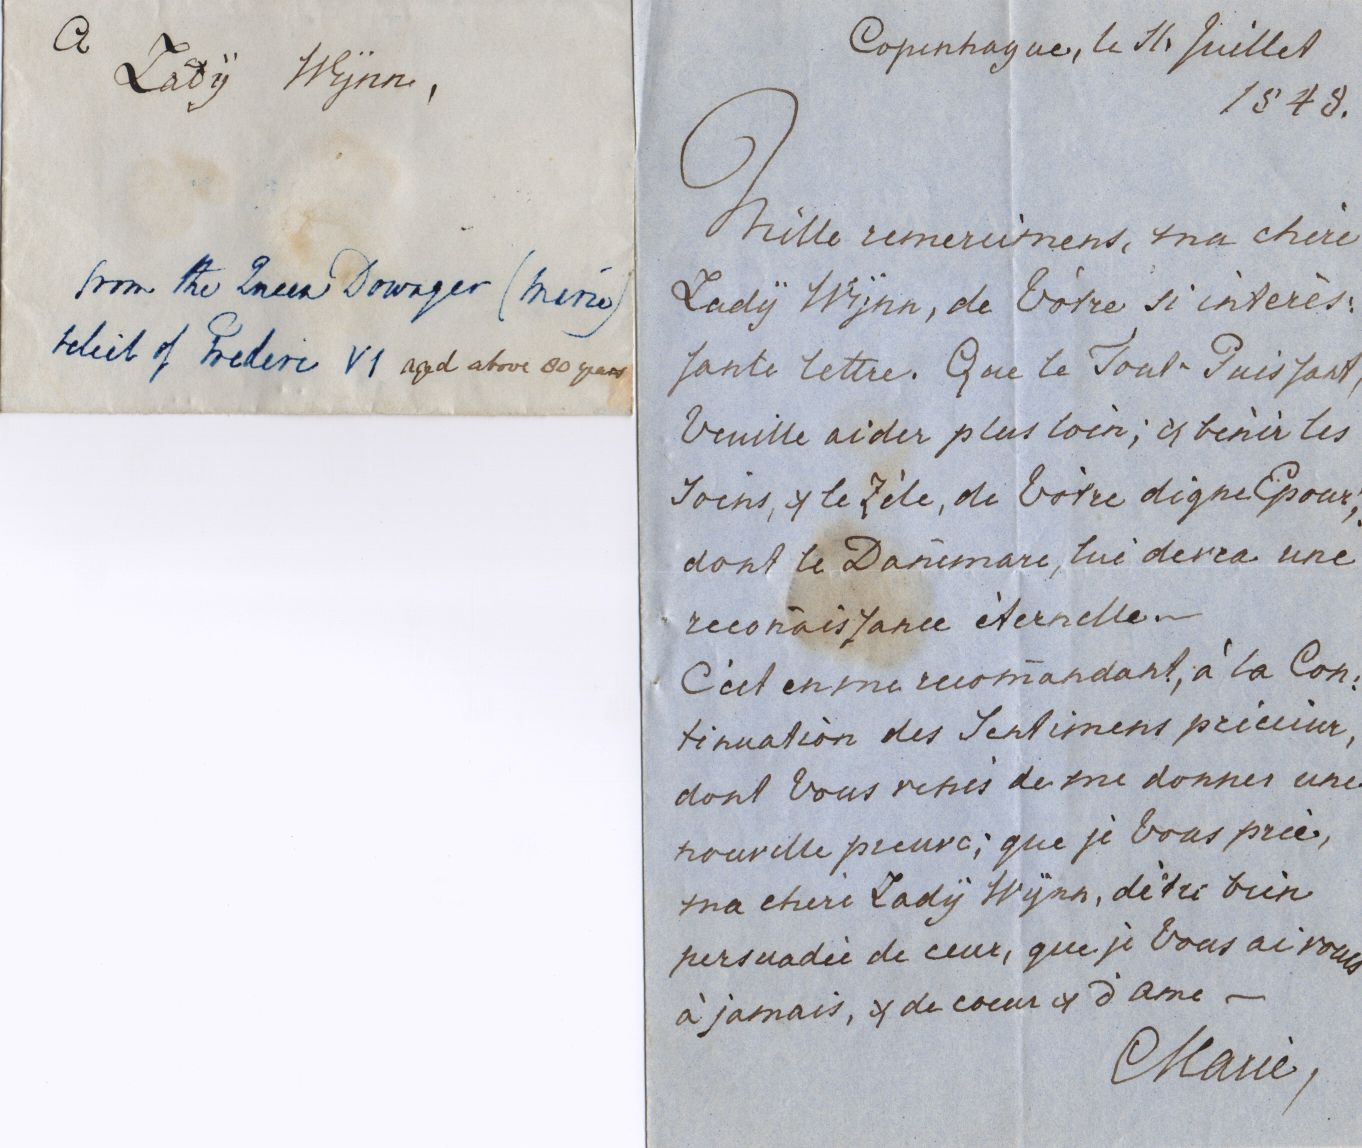 A
Ladÿ Wÿnn,
from the Queen Dowager (Marie)
relict of Frederic VI aged above 80 years
Copenhague, le 11, Juillet
1848.
Mille remercimens, ma chère
Ladÿ Wÿnn, de Vôtre si interès:
sante lettre. Que le Tout-Puissant,
Veuille aider plus loin; & bénir les
soins, & le Zéle, de Vôtre digne Epoux;
dont le Dan̄emarc, lui devra une
recon̄aissance éternelle.—
C'ést en me recom̄andant, à la Con:
tinuation des Sentimens précieux,
dont Vous venés de me donner une
nouvelle preuve; que je Vous prie,
ma chère Ladÿ Wÿnn, d'être bien
persuadée de ceux, que je Vous ai voués
à jamais, & de coeur & d'ame —
Marie,